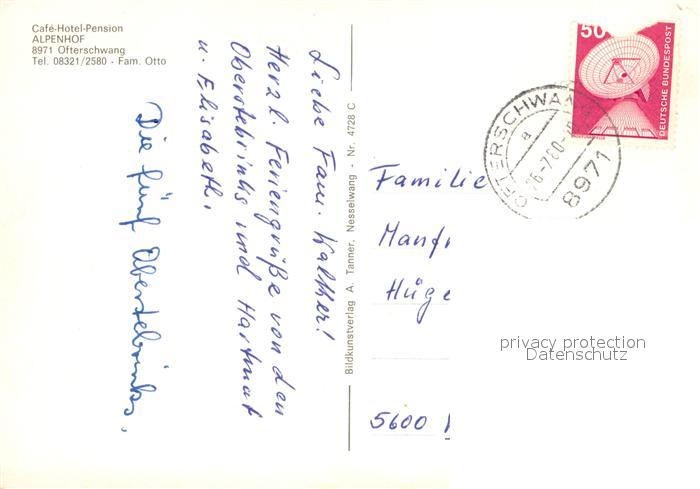 Café-Hotel-Pension
ALPENHOF
8971 Ofterschwang
Tel. 08321/2580 - Fam. Otto
Liebe Fam. Walther!
Herzl. Feriengrüße von den
Oberstebrinks und Hartmut
u. Elisabeth.
Die fünf Oberstebrinks.
Bildkunstverlag A. Tanner, Nesselwang - Nr. 4728 C
50
DEUTSCHE BUNDESPOST
OFTERSCHWAN
a
26-7.80-
8971
Familie
Manf
Hüge
5600
privacy protection
Datenschutz